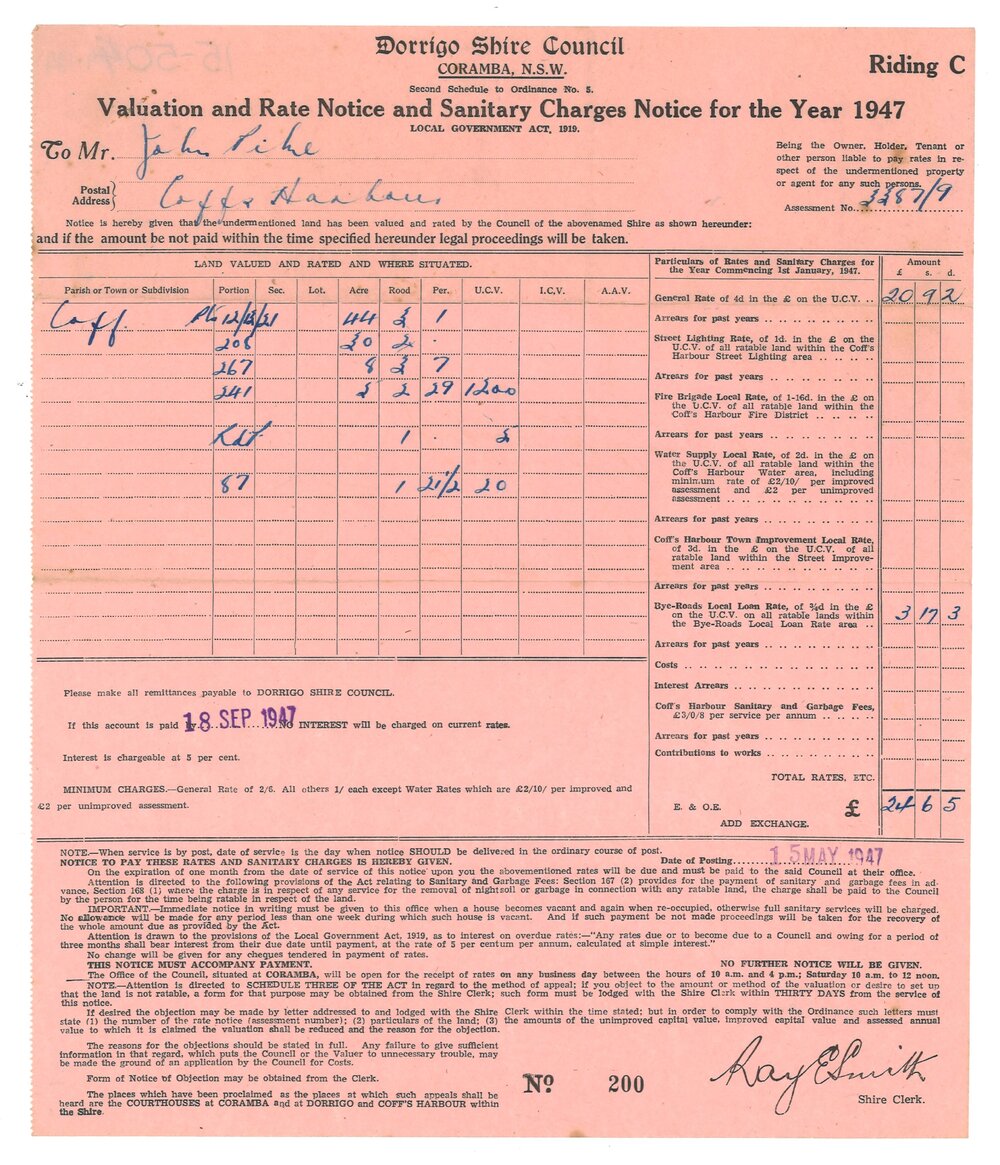 Dorrigo Shire Council
CORAMBA, N.S.W.
Riding C
Second Schedule to Ordinance No. 5.
Valuation and Rate Notice and Sanitary Charges Notice for the Year 1947
LOCAL GOVERNMENT ACT, 1919.
To Mr. John Pike
Postal Address} Coffs Harbour
Being the Owner, Holder, Tenant or
other person liable to pay rates in re-
spect of the undermentioned property
or agent for any such persons.
Assessment No. 3387/9
Notice is hereby given that the undermentioned land has been valued and rated by the Council of the abovenamed Shire as shown hereunder:
and if the amount be not paid within the time specified hereunder legal proceedings will be taken.
LAND VALUED AND RATED AND WHERE SITUATED.
Parish or Town or Subdivision Portion Sec. Lot. Acre Rood Per. U.C.V. I.C.V. A.A.V.
Coff. 44 1
208
267 8 3 7
241 2 29 1200
1 . 2
87 1 21/2 20
Particulars of Rates and Sanitary Charges for
the Year Commencing 1st January, 1947.
Amount
£ s. d.
General Rate of 4d in the £ on the U.C.V. .. 20 9 2
Arrears for past years
Street Lighting Rate, of 1d. in the £ on the
U.C.V. of all ratable land within the Coff's
Harbour Street Lighting area
Arrears for past years
Fire Brigade Local Rate, of 1-16d. in the £ on
the U.C.V. of all ratable land within the
Coff's Harbour Fire District
Arrears for past years
Water Supply Local Rate, of 2d. in the £ on
the U.C.V. of all ratable land within the
Coff's Harbour Water area, including
minimum rate of £2/10/ per improved
assessment and £2 per unimproved
assessment
Arrears for past years
Coff's Harbour Town Improvement Local Rate,
of 3d. in the £ on the U.C.V. of all
ratable land within the Street Improve-
ment area
Arrears for past years
Bye-Roads Local Loan Rate, of ¾d in the £
on the U.C.V. on all ratable lands within
the Bye-Roads Local Loan Rate area .. 3 17 3
Arrears for past years
Costs
Interest Arrears
Coff's Harbour Sanitary and Garbage Fees,
£3/0/8 per service per annum
Arrears for past years
Contributions to works
TOTAL RATES, ETC.
E. & O.E. £ 24 6 5
ADD EXCHANGE.
Please make all remittances payable to DORRIGO SHIRE COUNCIL.
If this account is paid by 18 SEP 1947 NO INTEREST will be charged on current rates.
Interest is chargeable at 5 per cent.
MINIMUM CHARGES.—General Rate of 2/6. All others 1/ each except Water Rates which are £2/10/ per improved and
£2 per unimproved assessment.
NOTE.—When service is by post, date of service is the day when notice SHOULD be delivered in the ordinary course of post.
NOTICE TO PAY THESE RATES AND SANITARY CHARGES IS HEREBY GIVEN. Date of Posting 15 MAY 1947
On the expiration of one month from the date of service of this notice upon you the abovementioned rates will be due and must be paid to the said Council at their office.
Attention is directed to the following provisions of the Act relating to Sanitary and Garbage Fees: Section 167 (2) provides for the payment of sanitary and garbage fees in ad-
vance, Section 168 (1) where the charge is in respect of any removal of nightsoil or garbage in connection with any ratable land, the charge shall be paid to the Council
by the person for the time being ratable in respect of the land.
IMPORTANT.—Immediate notice in writing must be given to this office when a house becomes vacant and again when re-occupied, otherwise full sanitary services will be charged.
No allowance will be made for any period less than one week during which such house is vacant. And if such payment be not made proceedings will be taken for the recovery of
the whole amount due as provided by the Act.
Attention is drawn to the provisions of the Local Government Act, 1919, as to interest on overdue rates:—"Any rates due or to become due to a Council and owing for a period of
three months shall bear interest from their due date until payment, at the rate of 5 per centum per annum, calculated at simple interest."
No change will be given for any cheques tendered in payment of rates.
THIS NOTICE MUST ACCOMPANY PAYMENT. NO FURTHER NOTICE WILL BE GIVEN.
The Office of the Council, situated at CORAMBA, will be open for the receipt of rates on any business day between the hours of 10 a.m. and 4 p.m.; Saturday 10 a.m. to 12 noon.
NOTE.—Attention is directed to SCHEDULE THREE OF THE ACT in regard to the method of appeal; if you object to the amount or method of the valuation or desire to set up
that the land is not ratable, a form for that purpose may be obtained from the Shire Clerk; such form must be lodged with the Shire Clerk within THIRTY DAYS from the service of
this notice.
If desired the objection may be made by letter addressed to and lodged with the Shire Clerk within the time stated; but in order to comply with the Ordinance such letters must
state (1) the number of the rate notice (assessment number); (2) particulars of the land; (3) the amounts of the unimproved capital value, improved capital value and assessed annual
value to which it is claimed the valuation shall be reduced and the reason for the objection.
The reasons for the objections should be stated in full. Any failure to give sufficient
information in that regard, which puts the Council or the Valuer to unnecessary trouble, may
be made the ground of an application by the Council for Costs.
Form of Notice of Objection may be obtained from the Clerk.
The places which have been proclaimed as the places at which such appeals shall be
heard are the COURTHOUSES at CORAMBA and at DORRIGO and COFF'S HARBOUR within
the Shire.
No 200
Ray E Smith
Shire Clerk.